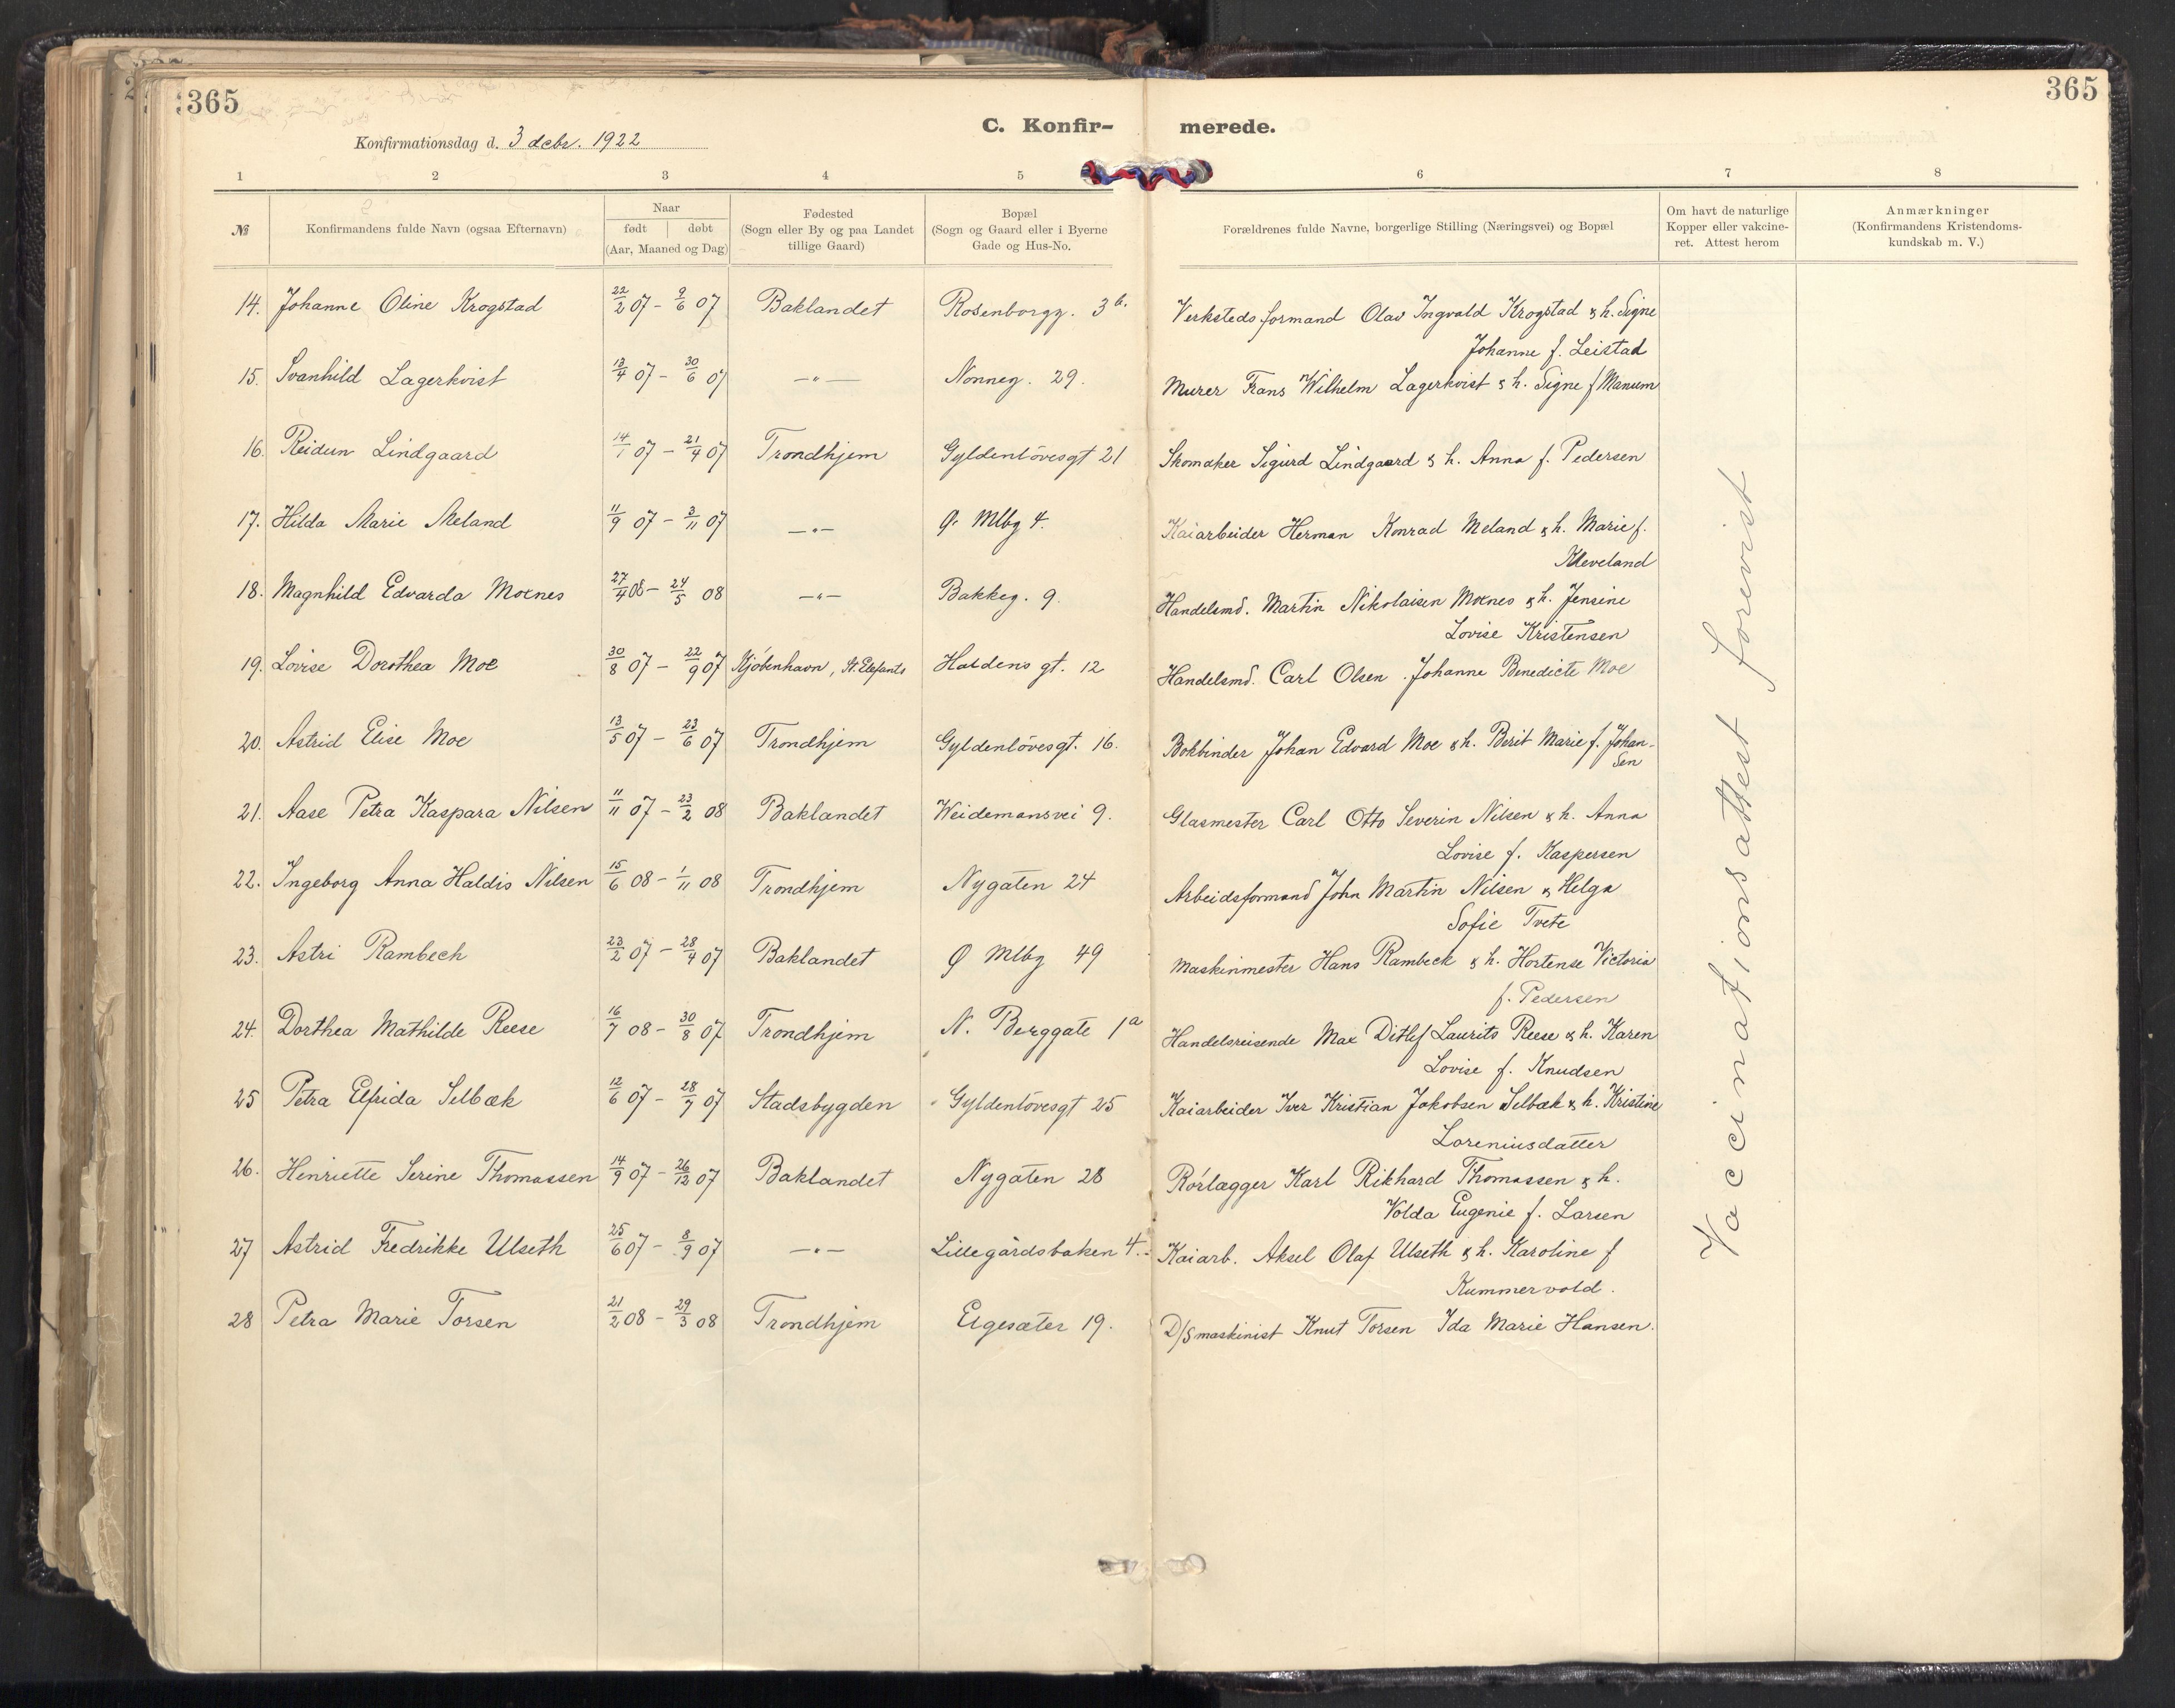 365
365
C. Konfir-
merede.
Konfirmationsdag d. 3 debr. 1922
1 2 3 4 5 6 7 8
№ Konfirmandens fulde Navn (ogsaa Efternavn) Naar født døbt (Aar, Maaned og Dag) Fødested (Sogn eller By og paa Landet tillige Gaard) Bopæl (Sogn og Gaard eller i Byerne Gade og Hus-No. Forældrenes fulde Navne, borgerlige Stilling (Næringsvei) og Bopæl Om havt de naturlige Kopper eller vakcineret. Attest herom Anmærkninger (Konfirmandens Kristendomskundskab m. V.)
14. Johanne Oline Krogstad 22/2 07 - 9/6 07 Baklandet Rosenborgg. 3 b. Verksteds formand Olav Ingvald Krogstad & h. Signe
Johanne f. Leistad
15. Svanhild Lagerkvist 13/4 07 - 30/6 07 -"- Nonneg. 29. Murer Frans Wilhelm Lagerkvist & h. Signe f Manum
16. Reidun Lindgaard 14/1 07 - 21/4 07 Trondhjem Gyldenlövesgt 21 Skomaker Sigurd Lindgaard & h. Anna f. Pedersen
17. Hilda Marie Meland 11/9 07 - 3/11 07 -"- Ø. Mlbg 4. Kaiarbeider Herman Konrad Meland & h. Marie f.
Kleveland
18. Magnhild Edvarda Moenes 27/4 08 - 24/5 08 -"- Bakkeg. 9. Handelsmd. Martin Nikolaisen Moenes & h. Jensine
Lovise Kristensen
19. Lovise Dorothea Moe 30/8 07 - 22/9 07 Kjöbenhavn, St. Elefants Haldens gt. 12 Handelsmd. Carl Olsen . Johanne Benedicte Moe
20. Astrid Elise Moe 13/5 07 - 23/6 07 Trondhjem Gyldenlövesgt. 16. Bokbinder Johan Edvard Moe & h. Berit Marie f. Johan-
sen
21. Aase Petra Kaspara Nilsen 11/11 07 - 23/2 08 Baklandet Weidemansvei 9. Glasmester Carl Otto Severin Nilsen & h. Anna
Lovise f. Kaspersen
22. Ingeborg Anna Haldis Nilsen 15/6 08 - 1/11 08 Trondhjem Nygaten 24 Arbeidsformand John Martin Nilsen & Helga
Sofie Tvete
23. Astri Rambech 23/2 07 - 28/4 07 Baklandet Ø Mlbg 49 Maskinmester Hans Rambeck & h. Hortense Victoria
f. Pedersen
24. Dorthea Mathilde Reese 16/7 08 - 30/8 07 Trondhjem N. Berggate 1a Handelsreisende Max Ditlef Laurits Reese & h. Karen
Lovise f. Knudsen
25 Petra Elfrida Selbæk 12/6 07 - 28/7 07 Stadsbygden Gyldenlövesgt 25 Kaiarbeider Iver Kristian Jakobsen Selbæk & h. Kristine
Loreniusdatter
26. Henriette Serine Thomassen 14/9 07 - 26/12 07 Baklandet Nygaten 28 Rörlægger Karl Rikhard Thomassen & h.
Volda Eugenie f. Larsen
27 Astrid Fredrikke Ulseth 25/6 07 - 8/9 07 -"- Lillegårdsbaken 4. Kaiarb. Aksel Olaf Ulseth & h. Karoline f
Kummervold.
28 Petra Marie Torsen 21/2 08 - 29/3 08 Trondhjem Elgesæter 19. D/S maskinist Knut Torsen Ida Marie Hansen.
Vaccinationsattest forevist